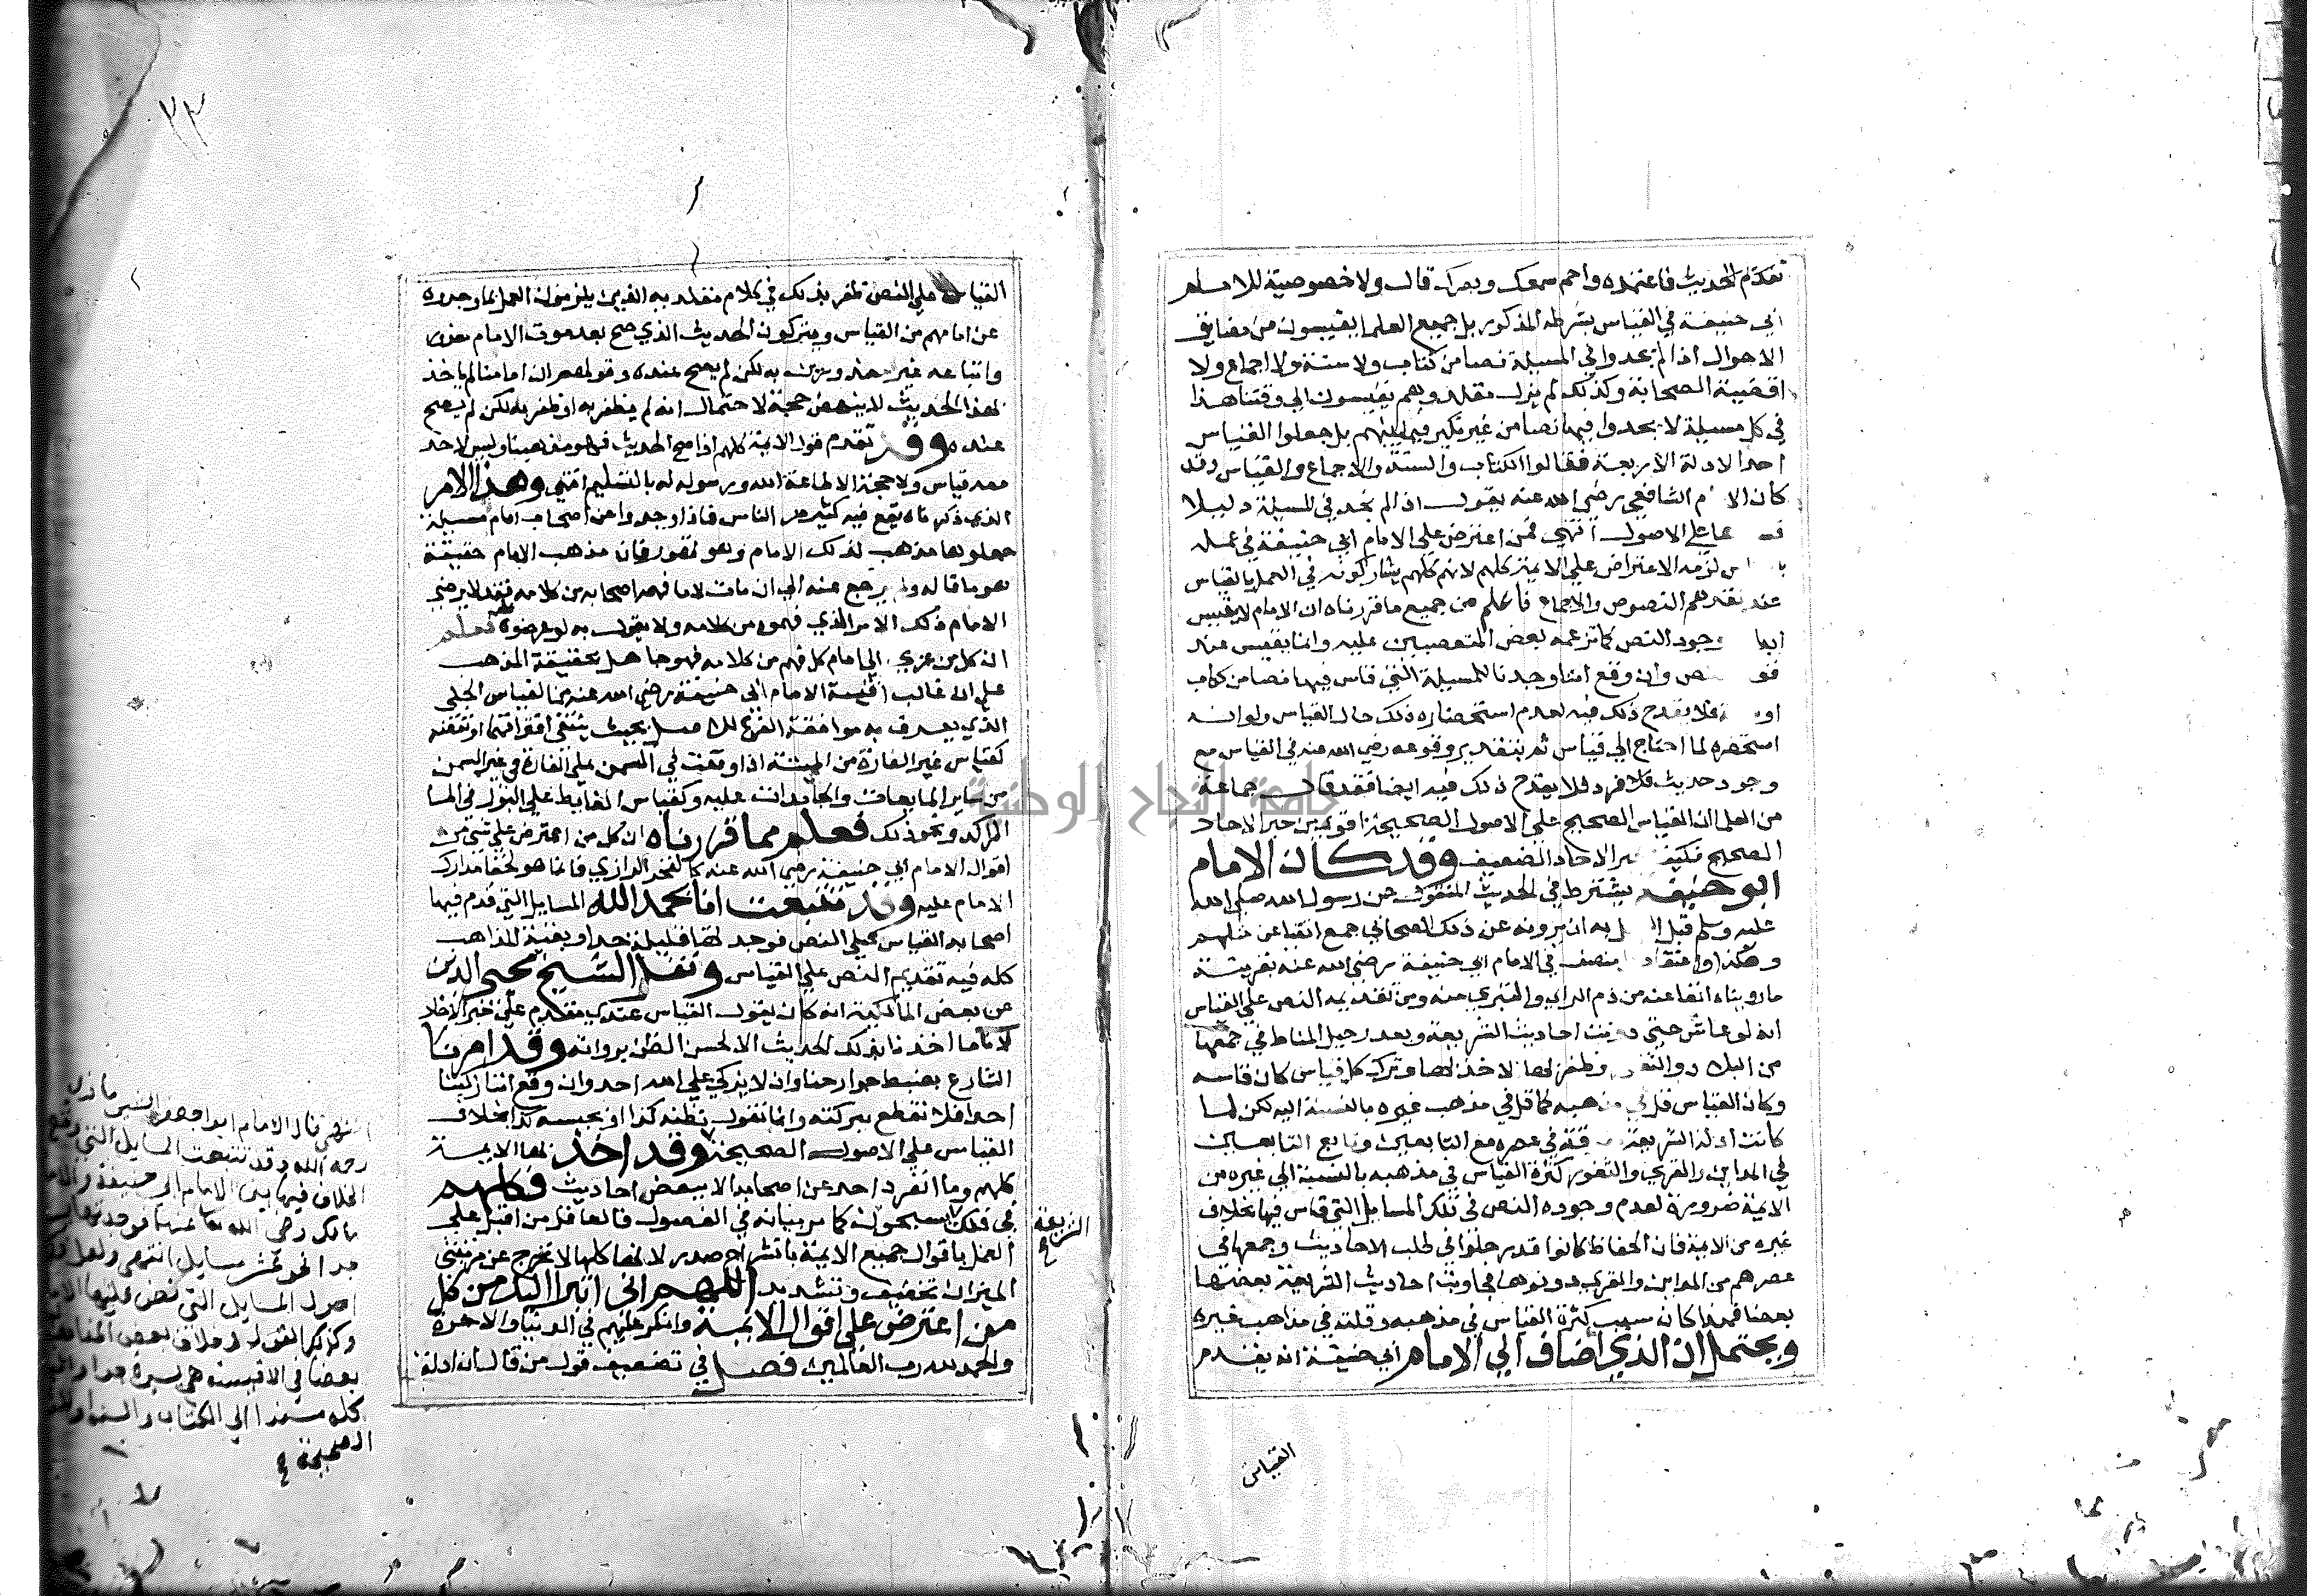 تقدم الحديث فاعتمده واحم سمعك وبصرك قال ولا خصوصية للامام
ابي حنيفة في القياس بشرطه المذكور بل جميع العلما يقيسون من مضايق
الاحوال اذا لم يجدوا في المسيلة نصا من كتاب ولا سنة ولا اجماع ولا
اقضية الصحابة وكذلك لم يزل مقلدوهم يقيسون الي وقتنا هذا
في كل مسيلة لا يجدوا فيها نصا من غير نكير فيما بينهم بل جعلوا القياس
احد الادلة الاربعة فقالوا الكتاب والسنة والاجماع والقياس وقد
كان الا م الشافعي رضي الله عنه يقول اذا لم نجد في المسيلة دليلا
قسـ ها علي الاصول انتهي فمن اعترض علي الامام ابي حنيفة في عمله
با س لزمه الاعتراض علي الايمة كلهم لانهم كلهم يشاركونه في العمل بالقياس
عند فقدهم النصوص والاجماع فاعلم من جميع ما قررناه ان الامام لا يقيس
ابدا وجود النص كما تزعمه بعض المتعصبين عليه وانما يقيس عند
فقـ ص وان وقع اننا وجدنا للمسيلة التي قاس فيها نصا من كتاب
او فلا يقدح ذلك فيه لعدم استحضاره ذلك حال القياس ولو انه
استحضره لما احتاج الي قياس ثم بتقدير وقوعه رضي الله عنه في القياس مع
وجود حديث فرد فلا يقدح ذلك فيه ايضا فقد قال جماعة
من العلما ان القياس الصحيح علي الاصول الصحيحة اقوي من خبر الاحاد
الصحيح فكيف بخبر الاحاد الضعيف وقد كان الامام
ابو حنيفة يشترط في الحديث المنقول عن رسول الله صلي الله
عليه وسلم قبل ا ل به ان يرويه عن ذلك الصحابي جمع اتقيا عن مثلهم
وهكذا واعتقاد منصف في الامام ابي حنيفة رضي الله عنه بقرينة
ما رويناه انفا عنه من ذم الراي والتبري منه ومن تقديمه النص علي القياس
انه لو عاش حتي دونت احاديث الشريعة وبعد رحيل الحفاظ في جمعها
من البلاد والثغور وظفر بها لاخذ بها وترك كل قياس كان قاسه
وكان القياس قل في مذهبه كما قل في مذهب غيره بالنسبة اليه لكن لما
كانت ادلة الشريعة مفرقة في عصره مع التابعين وتابع التابعين
في المداين والقري والثغور كثرة القياس في مذهبه بالنسبة الي غيره من
الايمة ضرورة لعدم وجوده النص في تلك المسايل التي قاس فيها بخلاف
غيره من الايمة فان الحفاظ كانوا قد رحلوا في طلب الاحاديث وجمعها في
عصرهم من المداين والقري ودونوها فجاوبت احاديث الشريعة بعضها
بعضا فهذا كان سبب كثرة القياس في مذهبه وقلته في مذاهب غيره
ويحتمل ان الذي اضاف الي الامام ابي حنيفة انه يقدم
القياس
٢٣
القياس علي النص ظفر بذلك في كلام مقلديه الذين يلزمون العمل بما وجدوه
عن امامهم من القياس ويتركون الحديث الذي صح بعد موت الامام
واتباعه غير به لكن لم يصح عنده وقولهم ان امامنا لم ياخذ
بهذا الحديث لا ينهض حجة لاحتمال انه لم يظفر به او ظفر به لكن لم يصح
عنده وقد تقدم قول الايمة كلهم اذا صح الحديث فهو مذهبنا وليس لاحد
معه قياس ولا حجة الا طاعة الله ورسوله بالتسليم انتهي وهذا الامر
الذي ذكرناه يقع فيه كثير من الناس فاذا وجدوا عن اصحاب امام مسيلة
جعلوها مذهب لذلك الامام وهو تهور فان مذهب الامام حقيقة
هو ما قاله ولم يرجع عنه الي ان مات لا ما فهمه اصحابه من كلامه فقد لا يرضي
الامام ذلك الامر الذي فهموه من كلامه ولا يقول به لو عرضوه عليه فعلم
ان كل من عزي الي امام كل فهم من كلامه فهو جاهل بحقيقة المذهب
علي ان غالب اقيسة الامام ابي حنيفة رضي الله عنه من القياس الجلي
الذي يعرف به موافقة الفرع للاصل بحيث ينتفي افتراقهما او نقضه
كقياس غير الفارة من الميتة اذا وقعت في السمن علي الفارة في غير السمن
من ساير المايعات والجامدات عليه وكقياس الغايط علي البول في الما
الراكد ونحو ذلك فعلم مما قررناه ان كل من اعترض علي شي من
اقوال الامام ابي حنيفة رضي الله عنه كالفخر الرازي فانما هو لخفا مدارك
الامام عليه وقد تتبعت انا بحمد الله المسايل التي قدم فيها
اصحابه القياس علي النص فوجدتها قليلة جدا وبقية المذاهب
كله فيه تقديم النص علي القياس ونقل الشيخ محيي الدين
عن بعض المالكية انه كان يقول القياس عندي مقدم علي خبر الاحاد
لاننا ما اخذنا بذلك الحديث الا لحسن الظن برواته وقد امرنا
الشارع بضبط جوارحنا وان لا نزكي علي الله احد وان وقع اننا زكينا
احدا فلا نقطع بتزكيته وانما نقول نظنه كذا او نحسبه كذا بخلاف
القياس علي الاصول الصحيحة وقد اخذ بهذا الايمة
كلهم وما انفرد احد عن اصحابه الا ببعض احاديث فكلهم
في فلك يسبحون كما مر بيانه في الفصول فالعاقل من اقبل علي
العمل باقوال جميع الايمة بانشراح صدر لانها كلها لا تخرج عن مرتبتي
الميزان تخفيف وتشديد اللهم اني ابرا اليك من كل
من اعترض علي اقوال الايمة وانكر عليهم في الدنيا والاخرة
والحمد لله رب العالمين فصل في تضعيف قول من قال ان ادلة
الشريعة
انتهي قال الامام ابو جعفر
رحمه الله وقد تتبعت المسايل التي وقع
الخلاف فيها بين الامام ابي حنيفة والامام
مالك رضي الله عنهما فوجدتها
جدا نحو عشر مسايل انتهي ولعل
اصول المسايل التي نص عليها
وكذلك القول في خلاف بعض المذاهب
بعضا في الاقيسة هي يسيرة جدا
كله مستندا الي الكتاب والسنة او
الصحيحة